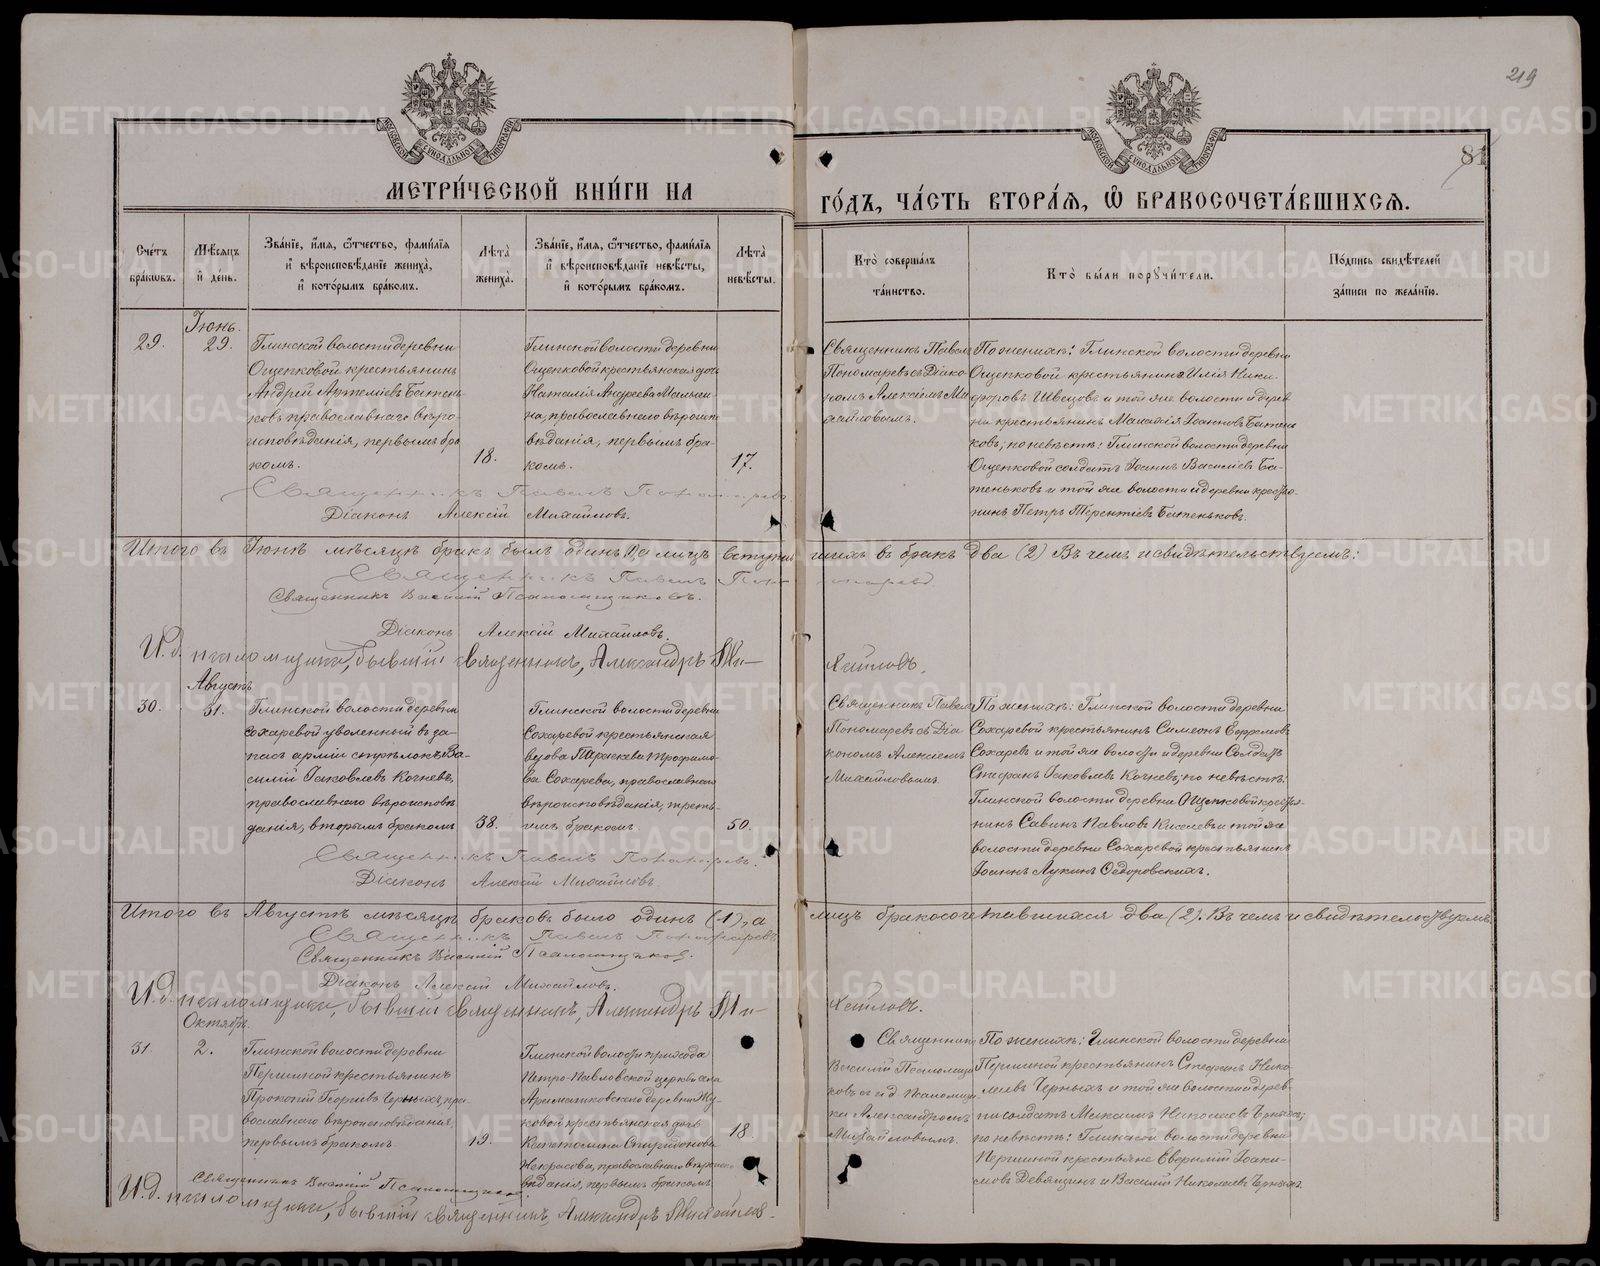 219
81
МОСКОВСКОЙ СѴНОДАЛЬНОЙ ТИПОГРАФІИ
МОСКОВСКОЙ СѴНОДАЛЬНОЙ ТИПОГРАФІИ
МЕТРИ́ЧЕСКОЙ КНИ́ГИ НА
ГО́ДЪ, ЧА́СТЬ ВТОРА́Я, Ѽ БРАКОСОЧЕТА́ВШИХСЯ.
Сче́тъ бра́ковъ.
Мѣ́сяцъ и҆ де́нь.
Зва́нїе, и҆́мя, ѻ҆́тчество, фами́лїя и҆ вѣроисповѣ́данїе жениха̀, и҆ кото́рымъ бра́комъ.
Лѣта̀ жениха̀.
Зва́нїе, и҆́мя, ѻ҆́тчество, фами́лїя и҆ вѣроисповѣ́данїе невѣ́сты, и҆ кото́рымъ бра́комъ.
Лѣта̀ невѣ́сты.
Кто̀ соверша́лъ та́инство.
Кто̀ бы́ли порꙋчи́тели.
По́дпись свидѣ́телей за́писи по жела́нїю.
Іюнь.
29.
29.
Глинской волости деревни
Ощепковой крестьянинъ
Андрей Артеміевъ Батень-
ковъ, православнаго вѣро-
исповѣданія, первымъ бра-
комъ.
18.
Глинской волости деревни
Ощепковой крестьянская дочь
Наталія Андреева
на, православнаго вѣроиспо
вѣданія, первымъ бра-
комъ.
17.
Священникъ Павелъ
Пономаревъ съ Діако-
номъ Алексѣемъ Ми-
хайловымъ.
По женихѣ: Глинской волости деревни
Ощепковой крестьянинъ Илія Ники-
форовъ Швецовъ и той же волости и дерев
ни крестьянинъ Іоанновъ Батень
ковъ; по невѣстѣ: Глинской волости деревни
Ощепковой солдатъ Іоаннъ Василіевъ Ба-
теньковъ и той же волости и деревни крестья-
нинъ Петръ Терентіевъ Батеньковъ.
Священникъ Павелъ Пономаревъ
Діаконъ Алексій Михайловъ.
Итого въ Іюнѣ мѣсяцѣ бракъ былъ одинъ (1) а лицъ вступив
шихъ въ бракъ два (2) Въ чемъ и свидѣтельствуемъ:
Священникъ Павелъ Пономаревъ
Священникъ Василій Псаломщиковъ.
Діаконъ Алексій Михайловъ.
И. д. псаломщика, бывшій священникъ, Александръ Ми-
хайловъ.
Августъ
30.
31.
Глинской волости деревни
Сохаревой уволенный въ за-
пасъ арміи стрѣлокъ Ва-
силій Іаковлевъ Кочневъ,
православнаго вѣроисповѣ
данія, вторымъ бракомъ
38.
Глинской волости деревни
Сохаревой крестьянская
вдова Параскева Трофимо-
ва Сохарева, православнаго
вѣроисповѣданія, треть-
имъ бракомъ.
50.
Священникъ Павелъ
Пономаревъ съ Діа
кономъ Алексѣемъ
Михайловымъ
По женихѣ: Глинской волости деревни
Сохаревой крестьянинъ Симеонъ Ефремовъ
Сохаревъ и той же волости и деревни Солдатъ
Стефанъ Іаковлевъ Кочневъ; по невѣстѣ:
Глинской волости деревни Ощепковой крестья-
нинъ Савинъ Павловъ Киселевъ и той же
волости деревни Сохаревой крестьянинъ
Іоаннъ Лукинъ Ѳедоровскихъ.
Священникъ Павелъ Пономаревъ.
Діаконъ Алексій Михайловъ
Итого въ Августѣ мѣсяцѣ браковъ было одинъ (1), а
лицъ бракосочетавшихся два (2). Въ чемъ и свидѣтельствуемъ
Священникъ Павелъ Пономаревъ
Священникъ Василій Псаломщиковъ.
Діаконъ Алексій Михайловъ.
И. д. псаломщика, бывшій священникъ, Александръ Ми-
хайловъ.
Октябрь.
31.
2.
Глинской волости деревни
Першиной крестьянинъ
Прокопій Георгіевъ Черныхъ, пра-
вославнаго вѣроисповѣданія,
первымъ бракомъ.
19.
Глинской волости прихода
Петро-Павловской церкви села
Арамашковскаго деревни Жу-
ковой крестьянская дочь
Капитолина Спиридонова
Некрасова, православнаго вѣроиспо
вѣданія, первымъ бракомъ
18.
Священникъ
Василій Псаломщи
ковъ съ и д псаломщи
ка Александромъ
Михайловымъ.
По женихѣ: Глинской волости деревни
Першиной крестьянинъ Стефанъ Нико-
лаевъ Черныхъ и той же волости и дерев
ни солдатъ Максимъ Николаевъ Черныхъ;
по невѣстѣ: Глинской волости деревни
Першиной крестьяне Іоаки-
мовъ Девяшинъ и Василій Николаевъ Черныхъ
Священникъ Василій Псаломщиковъ
И. д. псаломщика, бывшій священникъ, Александръ Михайловъ.
METRIKI.GASO-URAL.RU